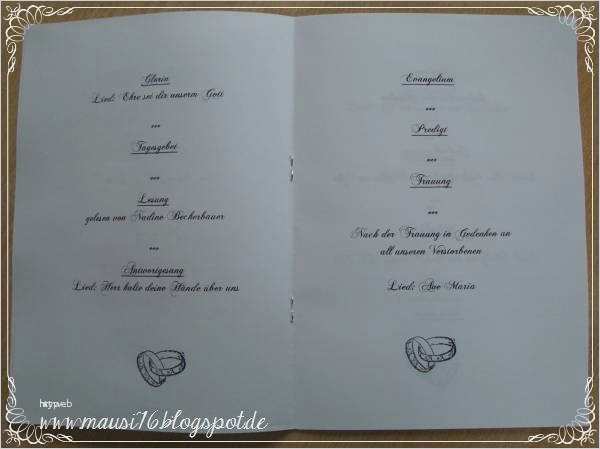 Gloria
Lied: Ehre sei dir unserm Gott
***
Tagesgebet
***
Lesung
gelesen von Nadine Becherbauer
***
Antwortgesang
Lied: Herr halte deine Hände über uns
Evangelium
***
Predigt
***
Trauung
***
Nach der Trauung in Gedenken an
all unseren Verstorbenen
Lied: Ave Maria
www.mausi76blogspot.de